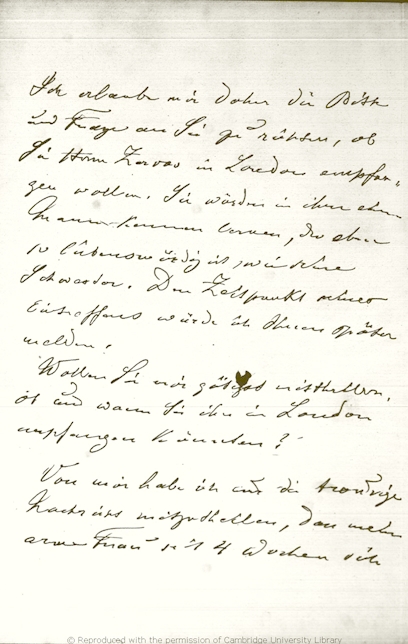 Ich erlaube mir daher die Bitte
und Frage an Sie zu richten, ob
Sie Herrn Zervas in London empfan-
gen wollen. Sie würden in ihm einen
Mann kennen lernen, der eben
so liebenswürdig ist, wie seine
Schwester. Den Zeitpunkt seines
Eintreffens würde ich Ihnen später
melden.
Wollen Sie mir gütigst mittheilen,
ob und wann Sie ihn in London
empfangen könnten?
Von mir habe ich nur die traurige
Nachricht mitzutheilen, dass meine
arme Frau seit 4 Wochen sich
© Reproduced with the permission of Cambridge University Library